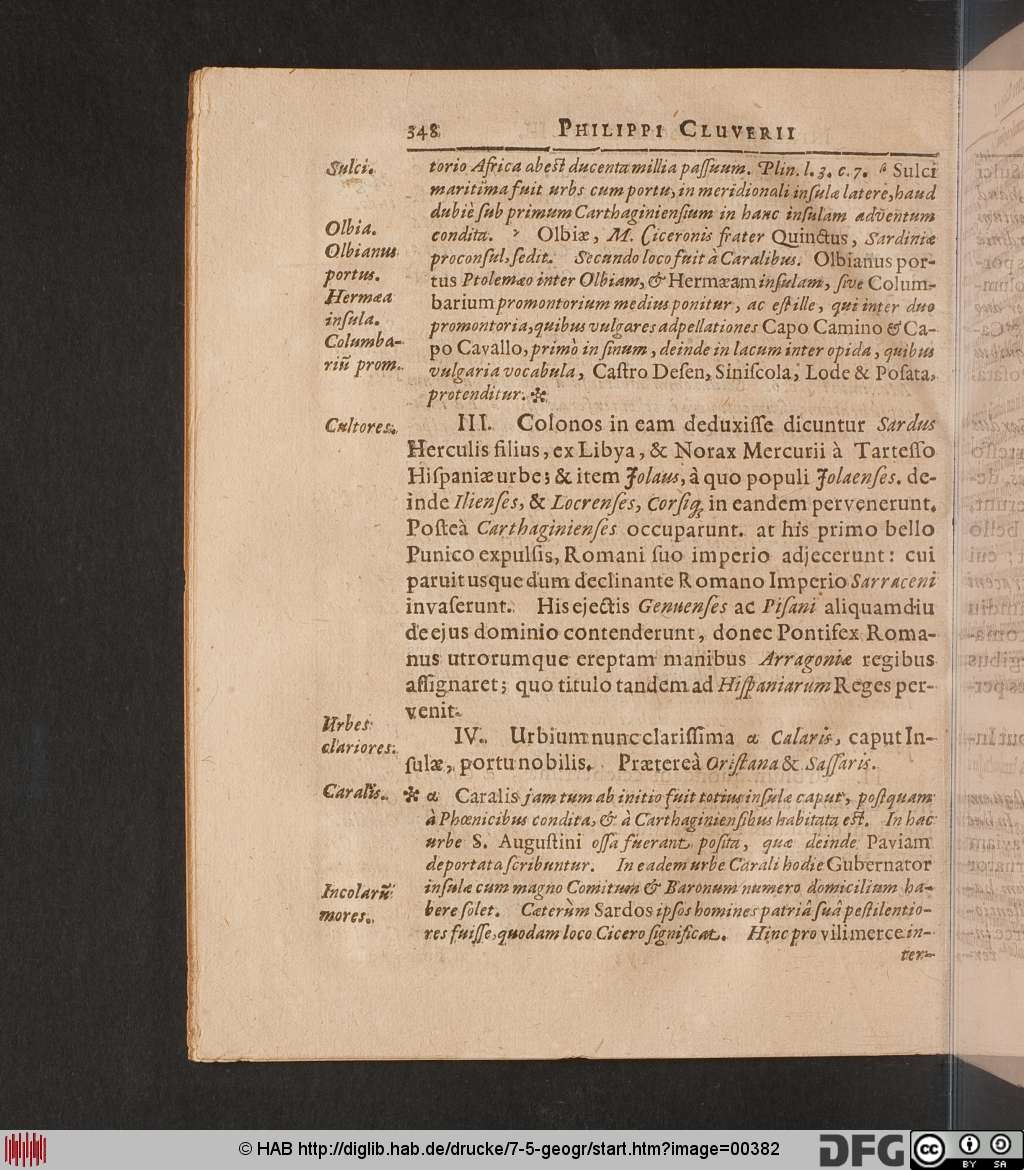 348 PHILIPPI CLUVERII
Sulci.
torio Africa abest ducenta millia passuum. Plin. l. 3. c. 7. Sulci
maritima fuit urbs cum portu, in meridionali insulæ latere, haud
dubiè sub primum Carthaginiensium in hanc insulam adventum
Olbia.
condita. Olbiæ, M. Ciceronis frater Quinctus, Sardiniæ
Olbianus
proconsul, sedit. Secundo loco fuit à Caralibus. Olbianus por-
portus.
tus Ptolemæo inter Olbiam, & Hermæam insulam, sive Colum-
Hermæa
barium promontorium medius ponitur, ac est ille, qui inter duo
insula.
promontoria, quibus vulgares adpellationes Capo Camino & Ca-
Columba-
po Cavallo, primò in sinum, deinde in lacum inter opida, quibus
riũ prom.
vulgaria vocabula, Castro Desen, Siniscola, Lode & Posata,
protenditur. ✼
Cultores.
III. Colonos in eam deduxisse dicuntur Sardus
Herculis filius, ex Libya, & Norax Mercurii à Tartesso
Hispaniæ urbe; & item Jolaus, à quo populi Jolaenses. de-
inde Ilienses, & Locrenses, Corsiq; in eandem pervenerunt.
Posteà Carthaginienses occuparunt. at his primo bello
Punico expulsis, Romani suo imperio adjecerunt: cui
paruit usque dum declinante Romano Imperio Sarraceni
invaserunt. His ejectis Genuenses ac Pisani aliquamdiu
de ejus dominio contenderunt, donec Pontifex Roma-
nus utrorumque ereptam manibus Arragoniæ regibus
assignaret; quo titulo tandem ad Hispaniarum Reges per-
venit.
Urbes
clariores.
IV. Urbium nunc clarissima α Calaris, caput In-
sulæ, portu nobilis. Prætereà Oristana & Sassaris.
Caralis.
✼ α Caralis jam tum ab initio fuit totius insulæ caput, postquam
à Phœnicibus condita, & à Carthaginiensibus habitata est. In hac
urbe S. Augustini ossa fuerant posita, quæ deinde Paviam
deportata scribuntur. In eadem urbe Carali hodie Gubernator
Incolarũ
insulæ cum magno Comitum & Baronum numero domicilium ha-
mores.
bere solet. Cæterùm Sardos ipsos homines patriâ suâ pestilentio-
res fuisse, quodam loco Cicero significat. Hinc pro vili merce in-
ter-
© HAB http://diglib.hab.de/drucke/7-5-geogr/start.htm?image=00382
DFG
cc BY SA